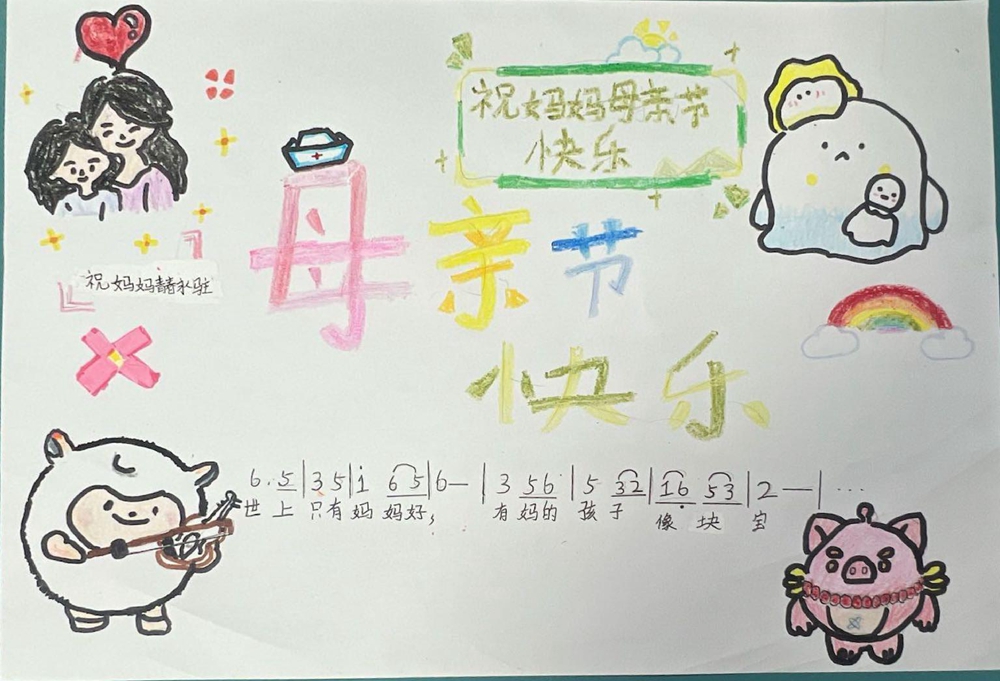 祝妈妈母亲节
快乐
母亲节
祝妈妈青春永驻
快乐
6. 5 | 3 5 | i 6 5 | 6 — | 3 5 6 · | 5 3 2 | 1 6 5 3 | 2 — | ···
世上只有妈妈好， 有妈的孩子 像块宝